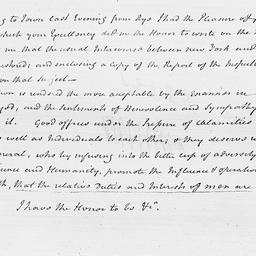 g to Town last Evening from Rye I had the Pleasure of
which your Excellency did me the Honor to write on the
me that the usual Intercourse between new York and
restored; and enclosing a copy of the Report of the
on that Subject—
is rendered the more acceptable by the manner in
and the Sentiments of Benevolence and Sympathy
it. Good offices under the Pressure of calamities
as well as Individuals to each other; & they deserve
who by infusing into the bitter cup of adversity
and Humanity, promote the Influence & operation
that the relative Duties and Interests of men are
I have the Honor to be &c.